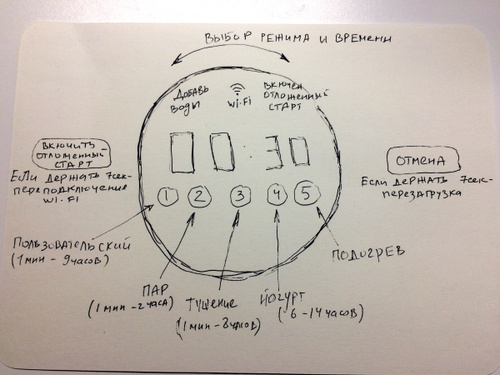 ВЫБОР РЕЖИМА И ВРЕМЕНИ
ДОБАВЬ
ВОДЫ
Wi-Fi
ВКЛЮЧЕН
ОТЛОЖЕННЫЙ
СТАРТ
ВКЛЮЧИТЬ
ОТЛОЖЕННЫЙ
СТАРТ
ЕСЛИ ДЕРЖАТЬ 7СЕК-
ПЕРЕПОДКЛЮЧЕНИЕ
WI-FI
00:30
ОТМЕНА
ЕСЛИ ДЕРЖАТЬ 7СЕК-
ПЕРЕЗАГРУЗКА
1 2 3 4 5
ПОЛЬЗОВАТЕЛЬСКИЙ
(1 МИН - 9 ЧАСОВ)
ПАР
(1 МИН - 2 ЧАСА)
ТУШЕНИЕ
(1 МИН - 8 ЧАСОВ)
ЙОГУРТ
(6 - 14 ЧАСОВ)
ПОДОГРЕВ